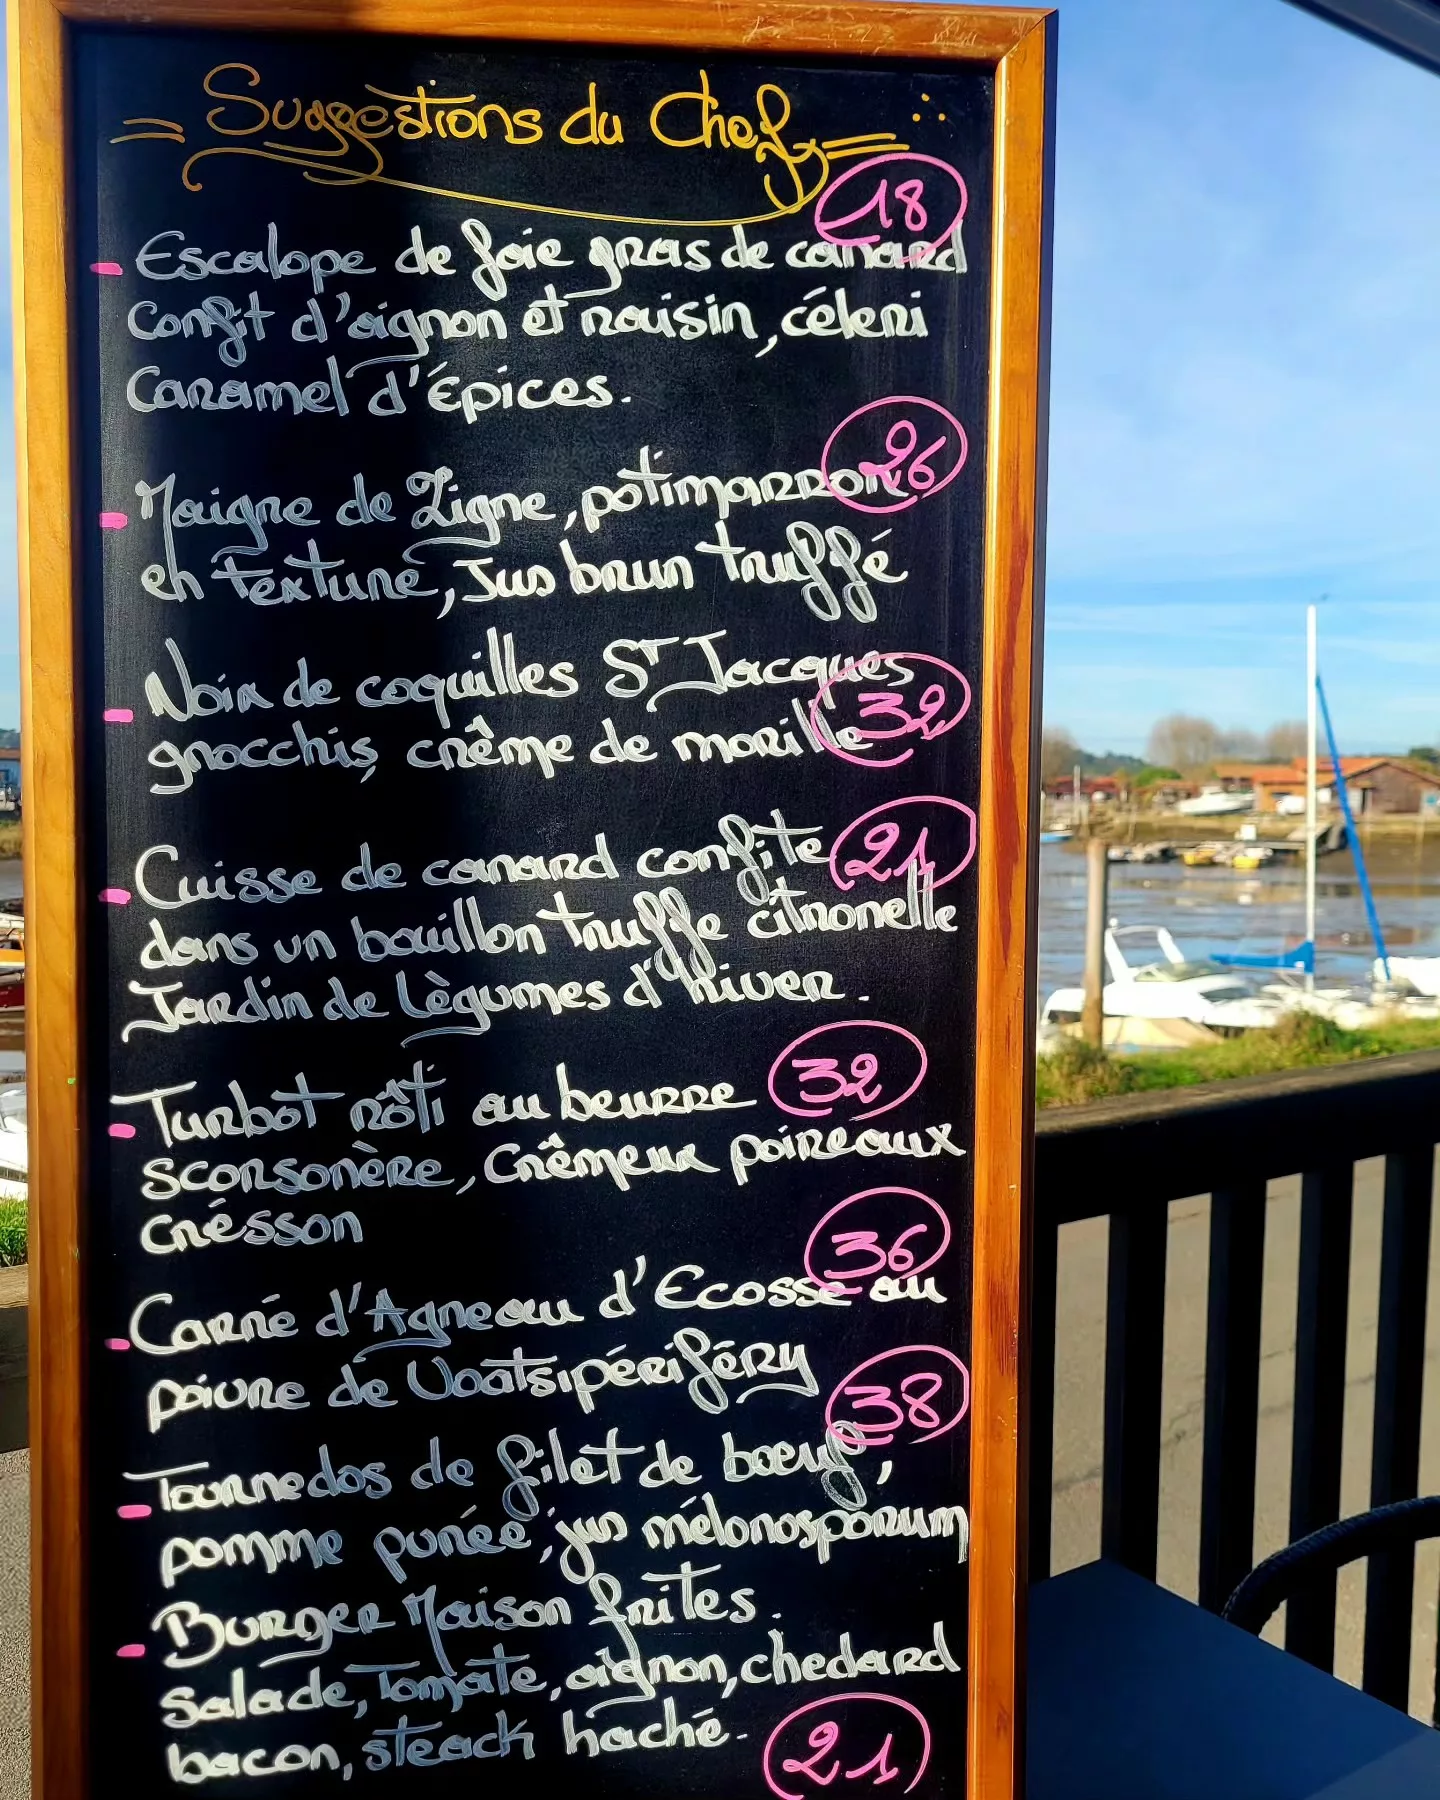 = Suggestions du Chef =
18
- Escalope de foie gras de canard
Confit d'oignon et raisin, céleri
Caramel d'Épices.
26
- Maigre de Ligne, potimarron
en texture, Jus brun truffé
- Noix de coquilles St Jacques
32
gnocchis, crème de morille
- Cuisse de canard confite 21
dans un bouillon truffe citronelle
Jardin de Lègumes d'hiver.
- Turbot rôti au beurre 32
scorsonère, Crêmeux poireaux
Crésson
36
- Carré d'Agneau d'Ecosse au
poivre de Voatsipériféry
38
- Tournedos de filet de boeuf,
pomme purée, jus mélonosporum
- Burger Maison frites.
Salade, Tomate, oignon, chedard
bacon, steack haché.
21